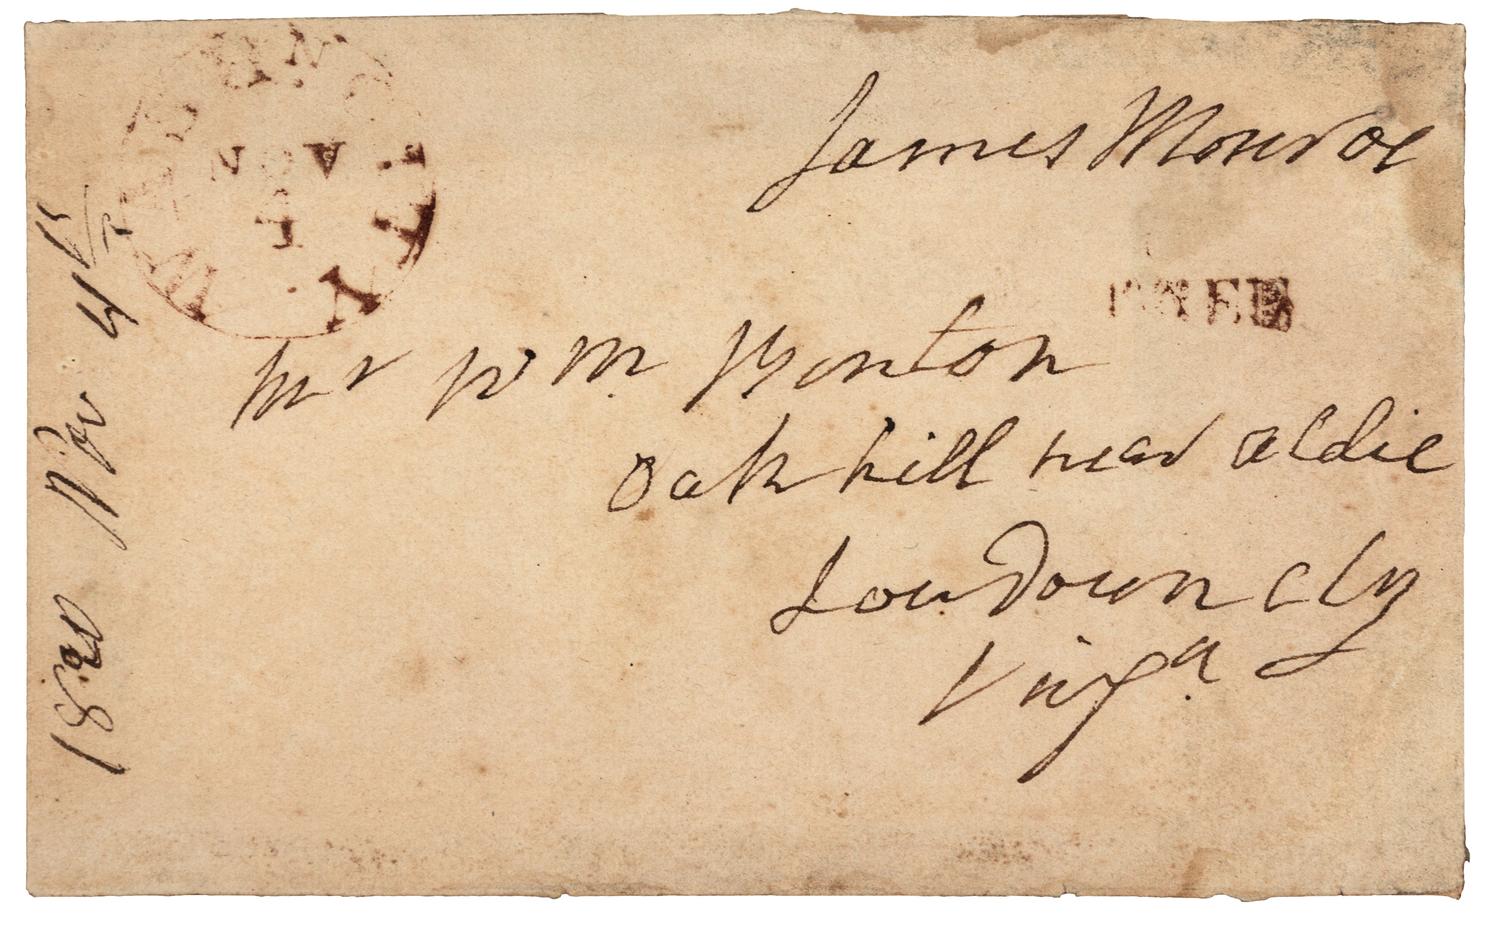 James Monroe
FREE
WASHINGTON CITY
NOV
4
Mr Wm. Benton
Oak hill near aldie
Loudoun cty
Virga
1820 Nov 4th